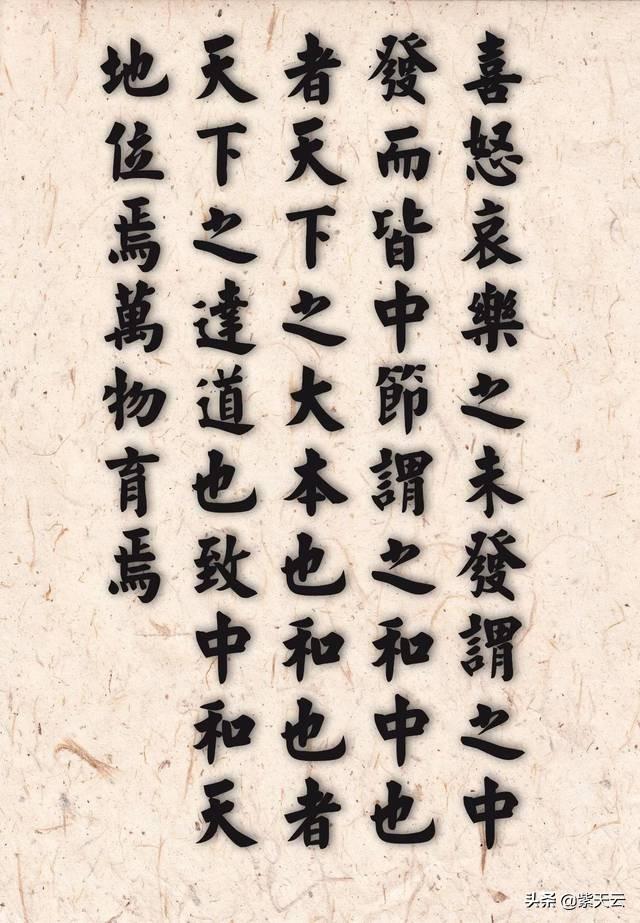 喜怒哀樂之未發謂之中
發而皆中節謂之和中也
者天下之大本也和也者
天下之達道也致中和天
地位焉萬物育焉
头条 @紫天云